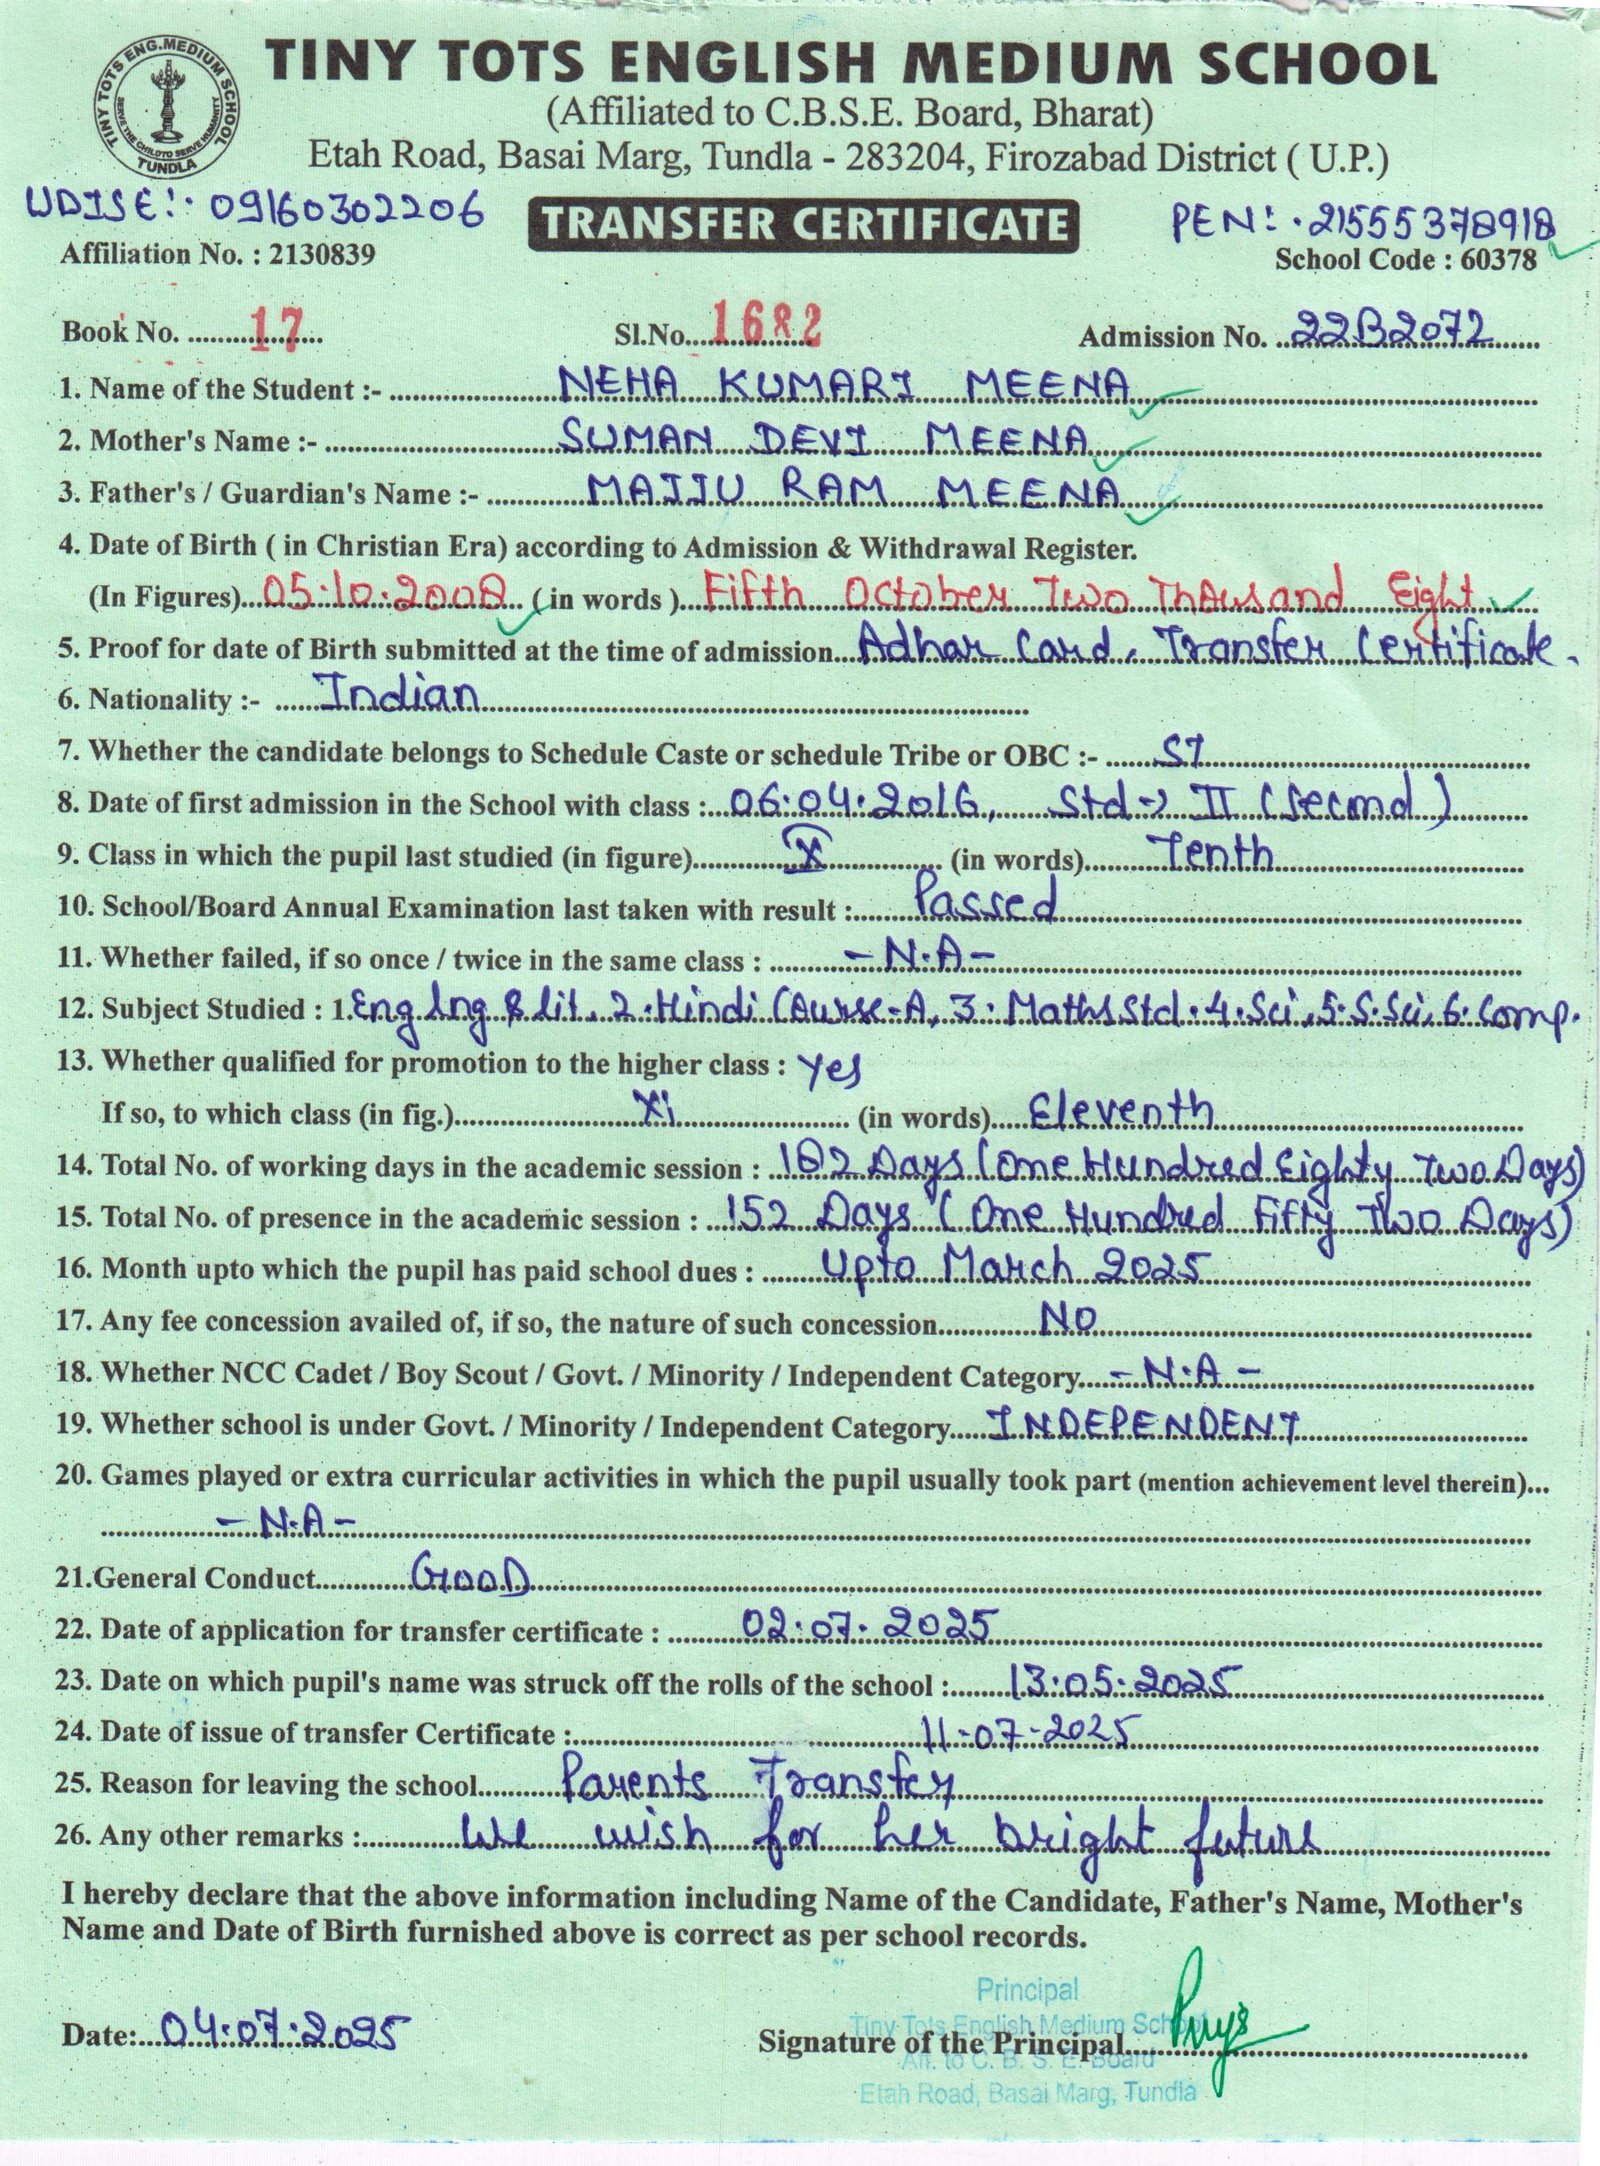 TINY TOTS ENG.MEDIUM SCHOOL
SERVE THE CHILD TO SERVE HUMANITY
TUNDLA
TINY TOTS ENGLISH MEDIUM SCHOOL
(Affiliated to C.B.S.E. Board, Bharat)
Etah Road, Basai Marg, Tundla - 283204, Firozabad District ( U.P.)
UDISE:- 09160302206 TRANSFER CERTIFICATE PEN:-21555378918
Affiliation No. : 2130839 School Code : 60378
Book No. 17 Sl.No. 1682 Admission No. 22B2072
1. Name of the Student :- NEHA KUMARI MEENA
2. Mother's Name :- SUMAN DEVI MEENA
3. Father's / Guardian's Name :- MAJJU RAM MEENA
4. Date of Birth ( in Christian Era) according to Admission & Withdrawal Register.
(In Figures) 05.10.2008 ( in words ) Fifth October Two Thousand Eight
5. Proof for date of Birth submitted at the time of admission Adhar Card, Transfer Certificate.
6. Nationality :- Indian
7. Whether the candidate belongs to Schedule Caste or schedule Tribe or OBC :- ST
8. Date of first admission in the School with class : 06.04.2016, Std → II (Second)
9. Class in which the pupil last studied (in figure) X (in words) Tenth
10. School/Board Annual Examination last taken with result : Passed
11. Whether failed, if so once / twice in the same class : -N.A-
12. Subject Studied : 1. Eng lng & lit, 2.Hindi Course-A, 3. Maths Std. 4.Sci, 5.S.Sci, 6.Comp.
13. Whether qualified for promotion to the higher class : Yes
If so, to which class (in fig.) XI (in words) Eleventh
14. Total No. of working days in the academic session : 182 Days (One Hundred Eighty Two Days)
15. Total No. of presence in the academic session : 152 Days (One Hundred Fifty Two Days)
16. Month upto which the pupil has paid school dues : Upto March 2025
17. Any fee concession availed of, if so, the nature of such concession NO
18. Whether NCC Cadet / Boy Scout / Govt. / Minority / Independent Category - N.A -
19. Whether school is under Govt. / Minority / Independent Category INDEPENDENT
20. Games played or extra curricular activities in which the pupil usually took part (mention achievement level therein)...
- N.A -
21.General Conduct GOOD
22. Date of application for transfer certificate : 02.07.2025
23. Date on which pupil's name was struck off the rolls of the school : 13.05.2025
24. Date of issue of transfer Certificate : 11-07-2025
25. Reason for leaving the school Parents Transfer
26. Any other remarks : We wish for her bright future
I hereby declare that the above information including Name of the Candidate, Father's Name, Mother's
Name and Date of Birth furnished above is correct as per school records.
Principal
Tiny Tots English Medium School
Date: 04.07.2025 Signature of the Principal
Aff. to C. B. S. E. Board
Etah Road, Basai Marg, Tundla